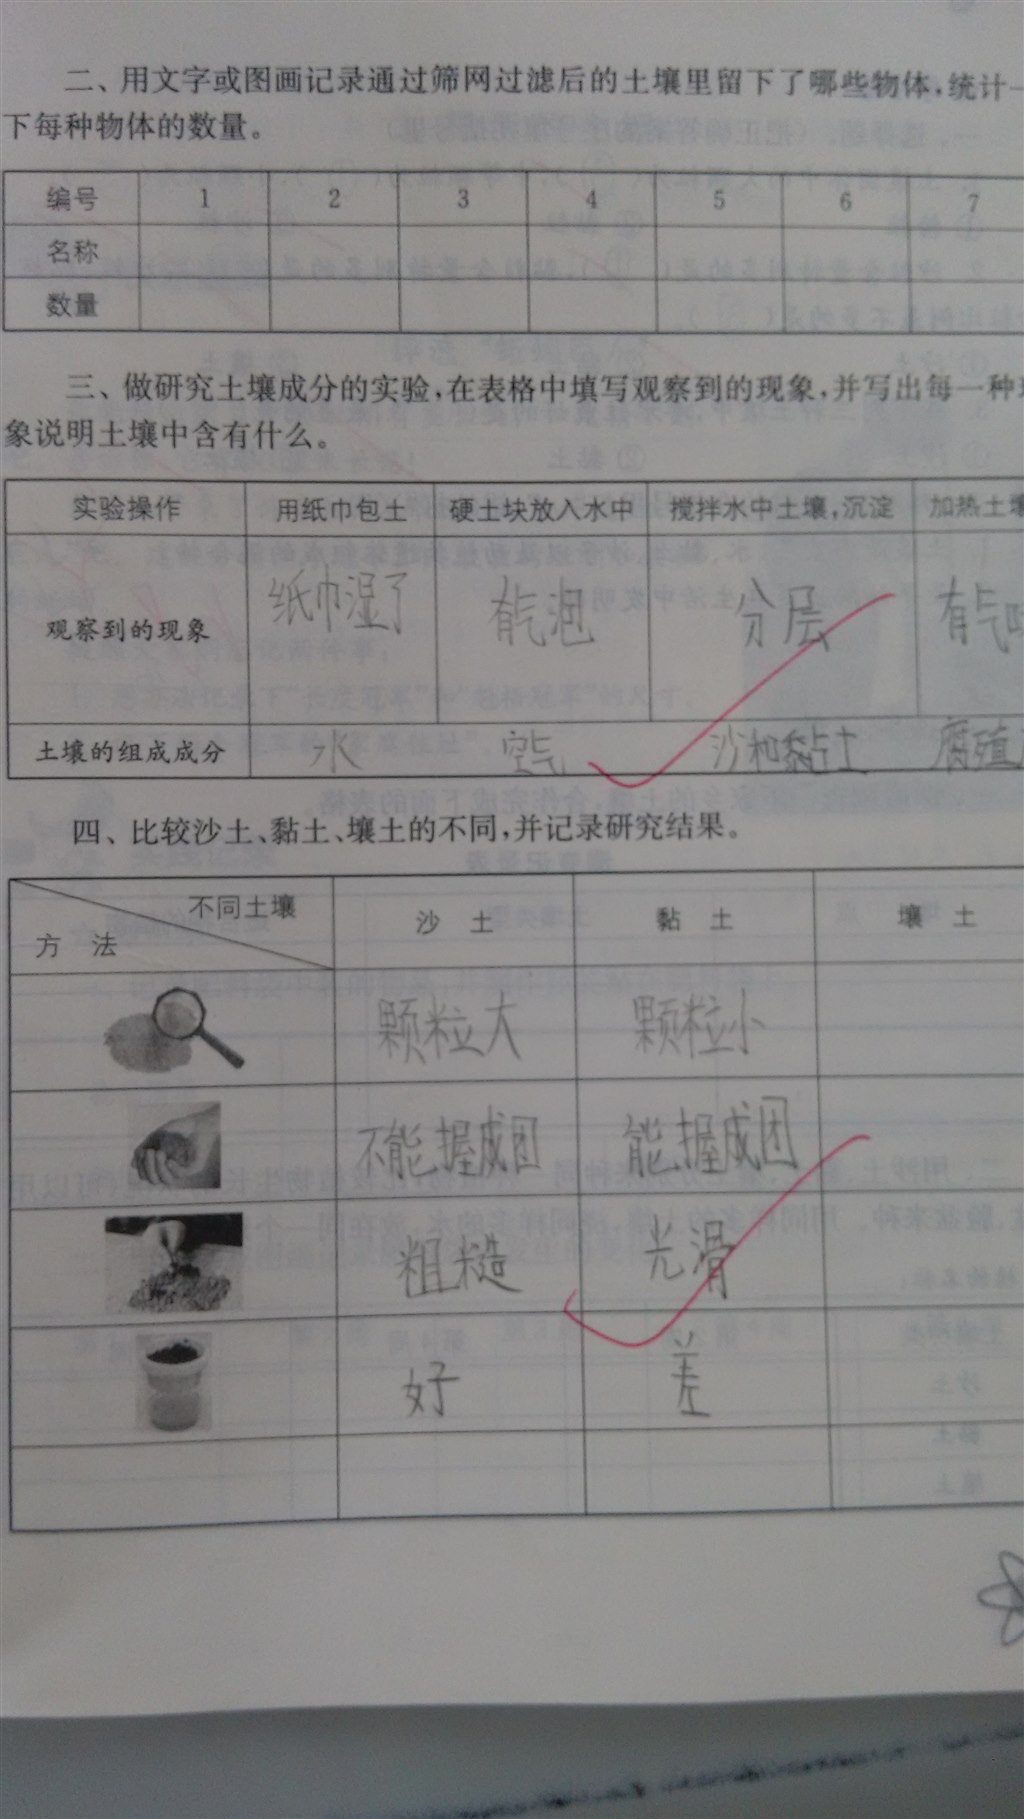 二、用文字或图画记录通过筛网过滤后的土壤里留下了哪些物体，统计一
下每种物体的数量。
编号 1 2 3 4 5 6 7
名称
数量
三、做研究土壤成分的实验，在表格中填写观察到的现象，并写出每一种现
象说明土壤中含有什么。
实验操作 用纸巾包土 硬土块放入水中 搅拌水中土壤，沉淀 加热土壤
观察到的现象 纸巾湿了 有气泡 分层 有气味
土壤的组成成分 水 空气 沙和黏土 腐殖
四、比较沙土、黏土、壤土的不同，并记录研究结果。
不同土壤 沙土 黏土 壤土
方法
颗粒大 颗粒小
不能握成团 能握成团
粗糙 光滑
好 差